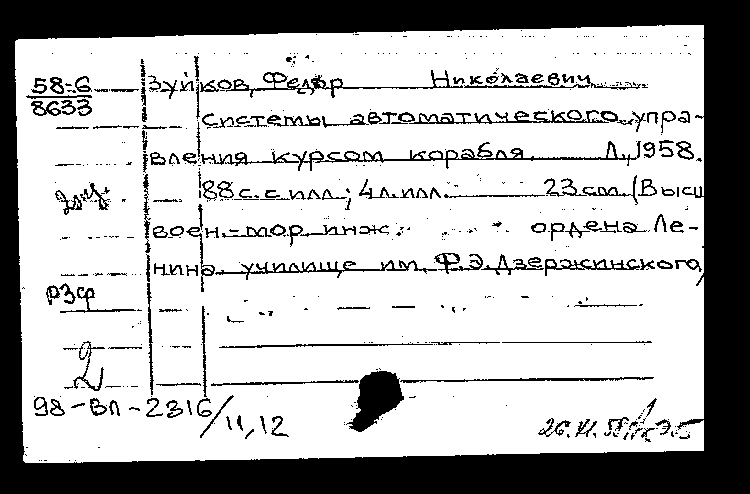 58-6 Зуйков, Федор Николаевич
8633
Системы автоматического упра-
вления курсом корабля. Л., 1958.
88 с. с илл.; 4 л. илл. 23 см. (Высш
воен.-мор. инж. ордена Ле-
нина училище им. Ф.Э.Дзержинского)
РЗФ
2
98-ВЛ-2316/11,12